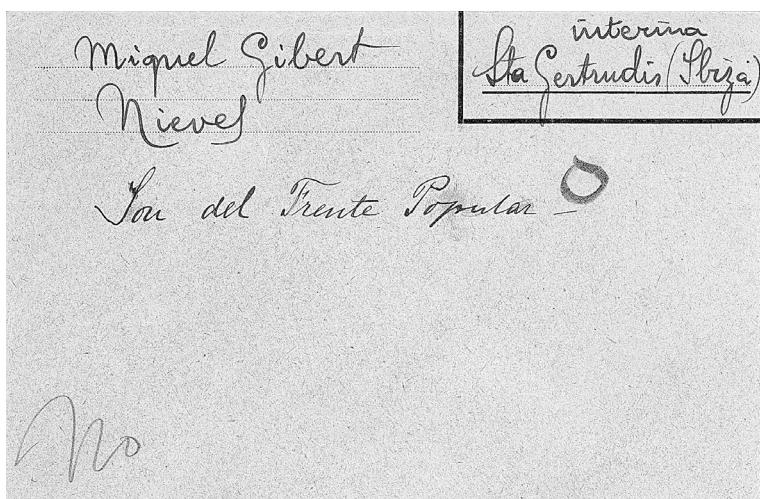 Miquel Gibert
Nieves
interina
Sta Gertrudis (Ibiza)
Son del Frente Popular -
No